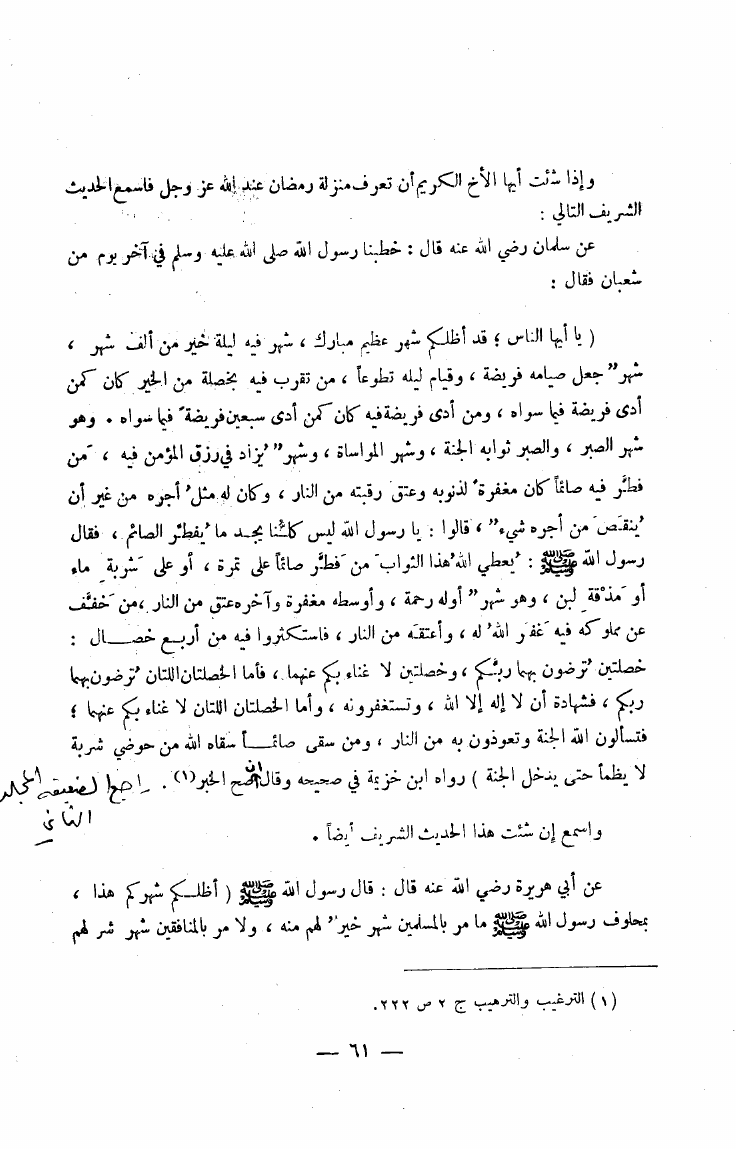 وإذا شئت أيها الأخ الكريم أن تعرف منزلة رمضان عند الله عز وجل فاسمع الحديث
الشريف التالي :
عن سلمان رضي الله عنه قال : خطبنا رسول الله صلى الله عليه وسلم في آخر يوم من
شعبان فقال :
( يا أيها الناس ؛ قد أظلكم شهر عظيم مبارك ، شهر فيه ليلة خير من ألف شهر ،
شهرٌ جعل صيامه فريضة ، وقيام ليله تطوعاً ، من تقرب فيه بخصلة من الخير كان كمن
أدى فريضة فيما سواه ، ومن أدى فريضة فيه كان كمن أدى سبعين فريضةً فيما سواه . وهو
شهر الصبر ، والصبر ثوابه الجنة ، وشهر المواساة ، وشهرٌ يُزاد في رزق المؤمن فيه ، مَن
فطَّر فيه صائماً كان مغفرةً لذنوبه وعتقَ رقبته من النار ، وكان له مثلُ أجره من غير أن
يُنقَصَ من أجره شيءٌ ، قالوا : يا رسول الله ليس كلُّنا يجد ما يُفطّر الصائم ، فقال
رسول الله ﷺ : يُعطي اللهُ هذا الثوابَ من فَطَّر صائماً على تمرة ، أو على شَربةِ ماء
أو مَذْقةِ لبن ، وهو شهرٌ أوله رحمة ، وأوسطه مغفرة وآخره عتق من النار ، من خَفَّف
عن مملوكه فيه غَفر اللهُ له ، وأعتقه من النار ، فاستكثروا فيه من أربع خصال :
خصلتين تُرضون بهما ربَّكم ، وخصلتين لا غناء بكم عنهما ، فأما الخصلتان اللتان تُرضون بهما
ربكم ، فشهادة أن لا إله إلا الله ، وتستغفرونه ، وأما الخصلتان اللتان لا غناء بكم عنهما ؛
فتسألون الله الجنة وتعوذون به من النار ، ومن سقى صائماً سقاه الله من حوضي شربة
لا يظمأ حتى يدخل الجنة ) رواه ابن خزيمة في صحيحه وقال إن صح الخبر (١) . راجع الضعيفة المجلد
الثاني
واسمع إن شئت هذا الحديث الشريف أيضاً .
عن أبي هريرة رضي الله عنه قال : قال رسول الله ﷺ ( أظلكم شهركم هذا ،
بمحلوف رسول الله ﷺ ما مر بالمسلمين شهر خيرٌ لهم منه ، ولا مر بالمنافقين شهر شر لهم
(١) الترغيب والترهيب ج ٢ ص ٢٢٢.
— ٦١ —